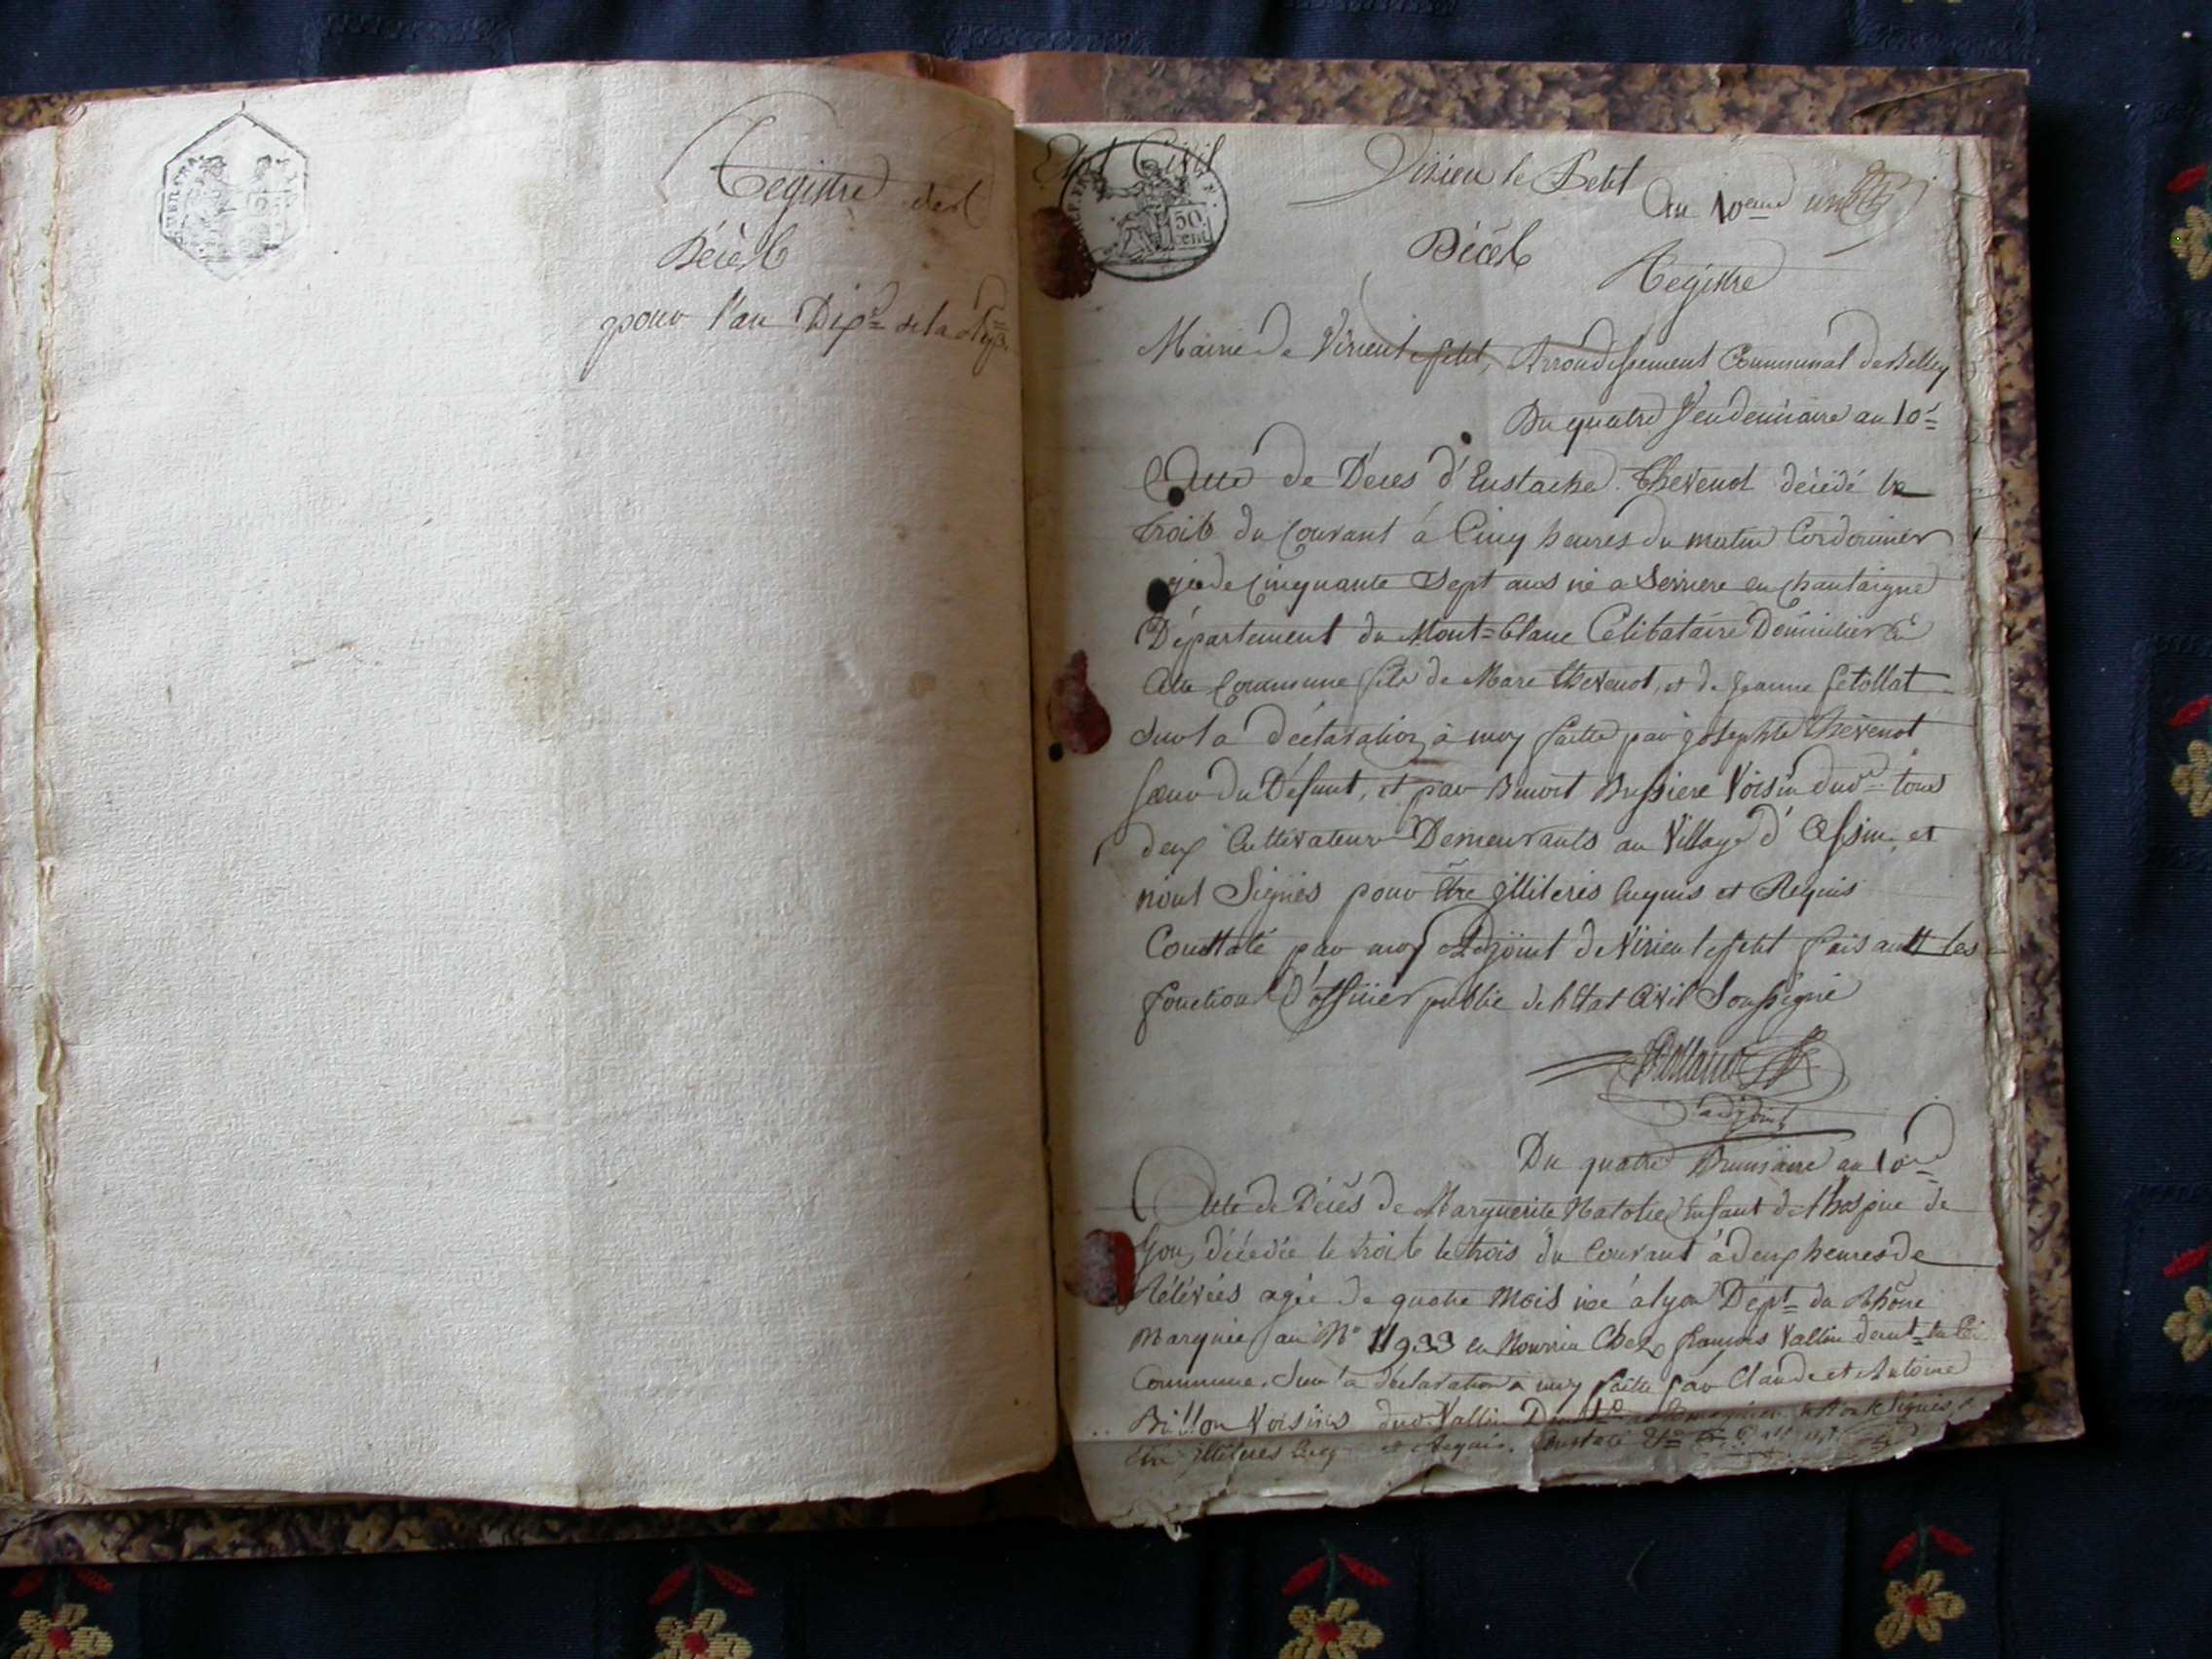 Registre des
Décès
pour l'an Dix.e de la Rép.
Etat Civil
50
cent
Virieu le Petit
an 10eme
Décès
Registre
Mairie de Virieu le petit, Arrondissement Communal de Belley
Du quatre Vendemiaire an 10.e
Acte de Déces d'Eustache Thevenot décédé le
trois du Courant à Cinq heures du matin Cordonnier
agé de Cinquante Sept ans né a Serriere en Chautaigne
Département du Mont=blanc Célibataire Domicilier en
Cette Commune fils de Marc thevenot, et de jeanne
Sur la déclaration à moy faitte par josephte thevenot
sœur du Défunt, et par Benoit Bussiere Voisin dud.t tous
deux Cultivateurs Demeurants au Village d'Assin, et
n'ont Signés pour être jlliterés Enquis et Requis
Constaté par moy Adjoint de Virieu le petit faisant les
fonctions d'officier public de l'Etat Civil Soussigné
adjoint
Du quatre Brumaire an 10.e
Acte de Décès de Marguerite Natolie Enfant de l'hospice de
lyon, décedée le trois le trois du Courant à deux heures de
Rélévées agée de quatre Mois née à lyon Dépt. du Rhône
Marquée au N.o 11933 en Nourrice Chez françois Vallin demt. en Cte
Commune. Sur la déclaration à moy faitte par Claude et Antoine
Billon Voisins dud. Vallin et n'ont Signés p.
être jlliteres Enq. et Requis. Constaté